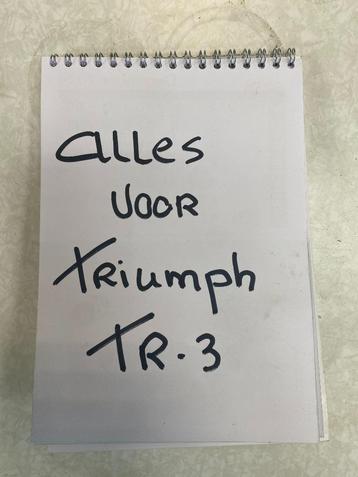 alles
voor
Triumph
TR.3